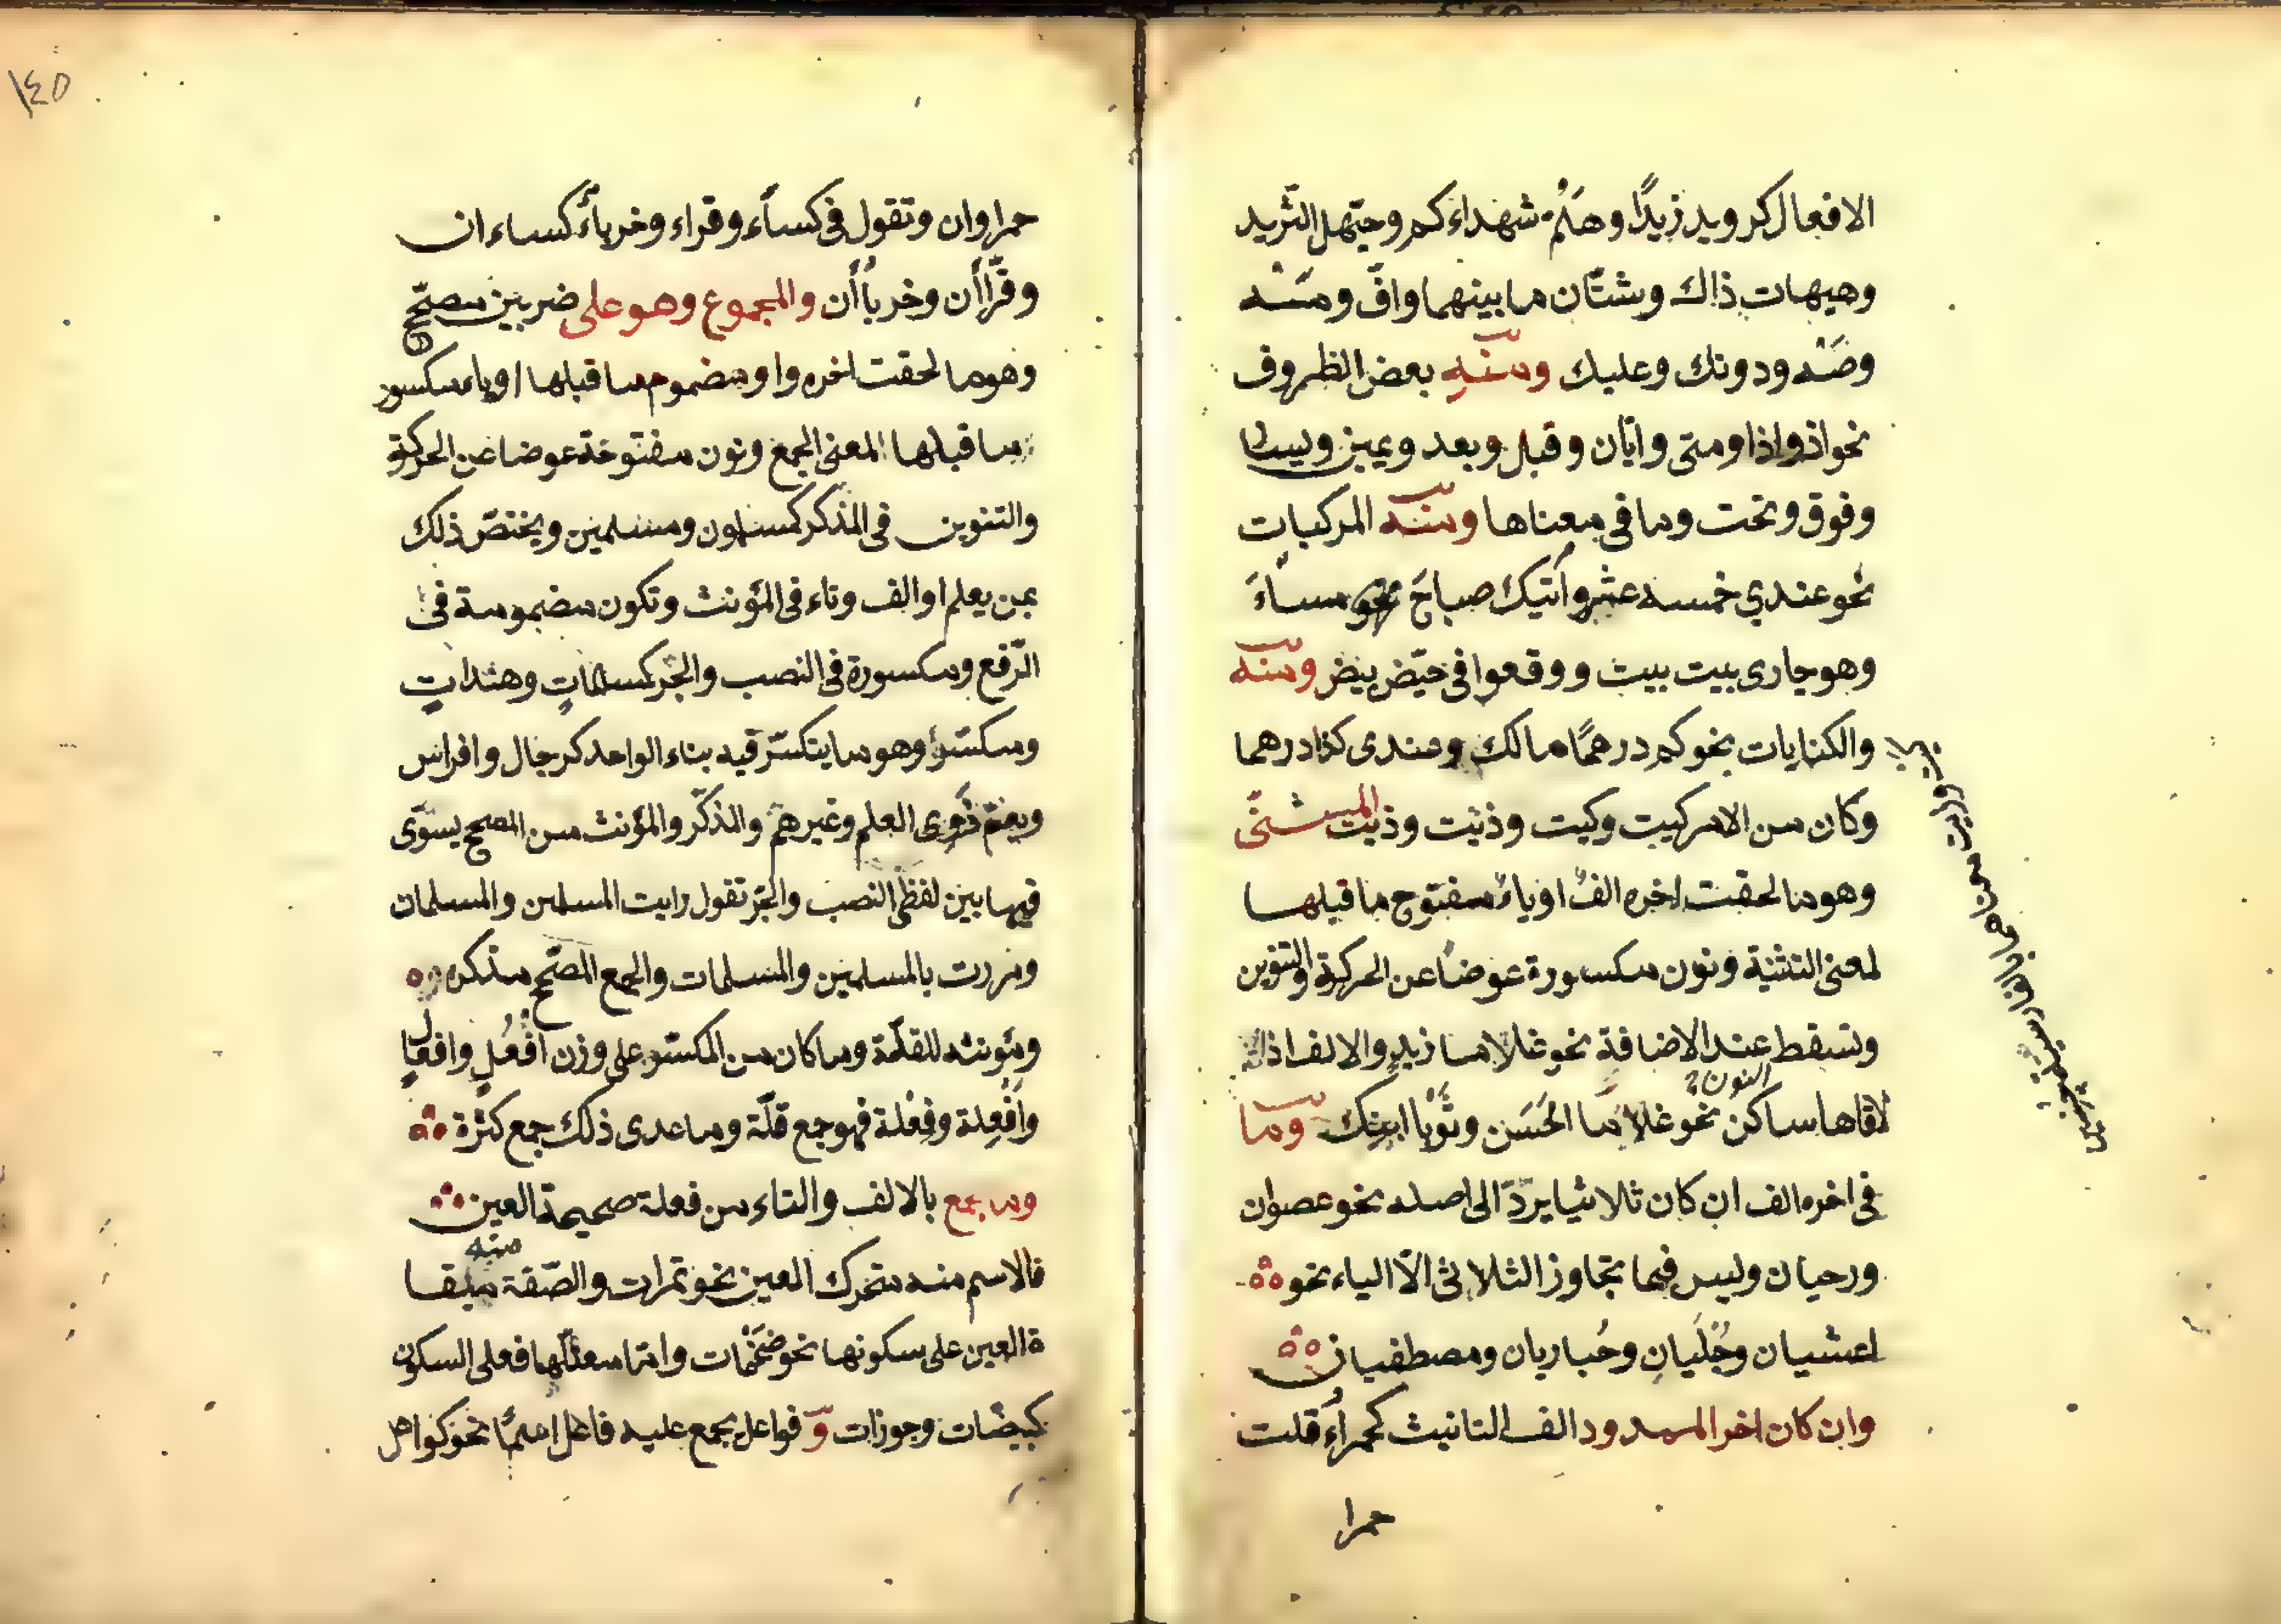 الافعال كرويد زيدًا وهَلُمَّ شهداءكم وحيّهل الثريد
وهيهات ذاك وشتّان ما بينهما وافّ ومَه
وصَه ودونك وعليك ومنه بعض الظروف
نحو اذ واذا ومتى وايّان وقبل وبعد ويمين
وفوق وتحت وما في معناها ومنه المركبات
نحو عندي خمسة عشر وآتيك صباحَ مساءَ
وهو جارى بيت بيت ووقعوا في حيّض بيض ومنه
والكنايات نحو كم درهمًا مالك وعندى كذا درهما
وكان من الامر كيت وكيت وذيت وذيت المثنّى
وهو ما لحقت اخره الفٌ او ياءٌ مفتوح ما قبلها
لمعنى التثنية ونون مكسورة عوضًا عن الحركة والتنوين
وتسقط عند الاضافة نحو غلاما زيدٍ والالف اذا
النون
لاقاها ساكن نحو غلاما الحَسَن وثَوْبا ابنك وما
في اخره الف ان كان ثلاثيا يردّ الى اصله نحو عصوان
ورحيان وليس فيما يتجاوز الثلاثى الّا الياء نحو
اعشيان وحُبْلَيان وحُباريان ومصطفيان
وان كان اخر الممدود الف التانيث كحمراء قلت
حمرا
١٤٥
حمراوان وتقول في كساء وقراء وخرباء كساءان
وقرّاأن وخرباأن والمجموع وهو على ضربين مصحّح
وهو ما لحقت اخره واو مضموم ما قبلها او ياء مكسور
ما قبلها لمعنى الجمع ونون مفتوحة عوضا عن الحركة
والتنوين في المذكر كمسلمون ومسلمين ويختصّ ذلك
بمن يعلم او الف وتاء في المؤنث وتكون مضمومة في
الرّفع ومكسورة في النصب والجرّ كمسلماتٍ وهنداتٍ
ومكسّر وهو ما يتكسّر فيه بناء الواحد كرجال وافراس
ويعمّ ذوى العلم وغيرهم والمذكّر والمؤنث من المصحح يسوّى
فيهما بين لفظى النصب والجرّ تقول رايت المسلمين والمسلمات
ومررت بالمسلمين والمسلمات والجمع المصحّح مذكره
ومؤنثه للقلّة وما كان من المكسّر على وزن افْعُلٍ وافعالٍ
وأفْعِلة وفِعْلة فهو جمع قلّة وما عدى ذلك جمع كثرة
وما جمع بالالف والتاء من فعلة صحيحة العين
فالاسم منه متحرك العين نحو تمرات والصّفة مبقا
منه
ة العين على سكونها نحو ضَخْمات وامّا معتلّها فعلى السكون
كبيضات وجوزات و فواعل يجمع عليه فاعل اسمًا نحو كواهل